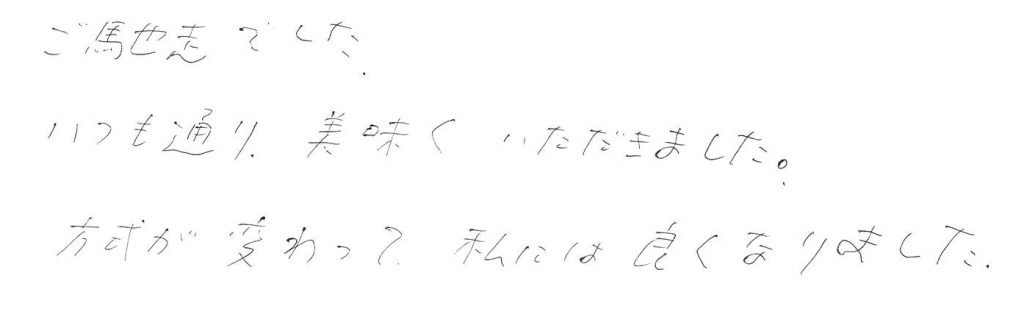 ご馳走でした.
いつも通り、美味く いただきました。
方式が変わって、私には良くなりました.